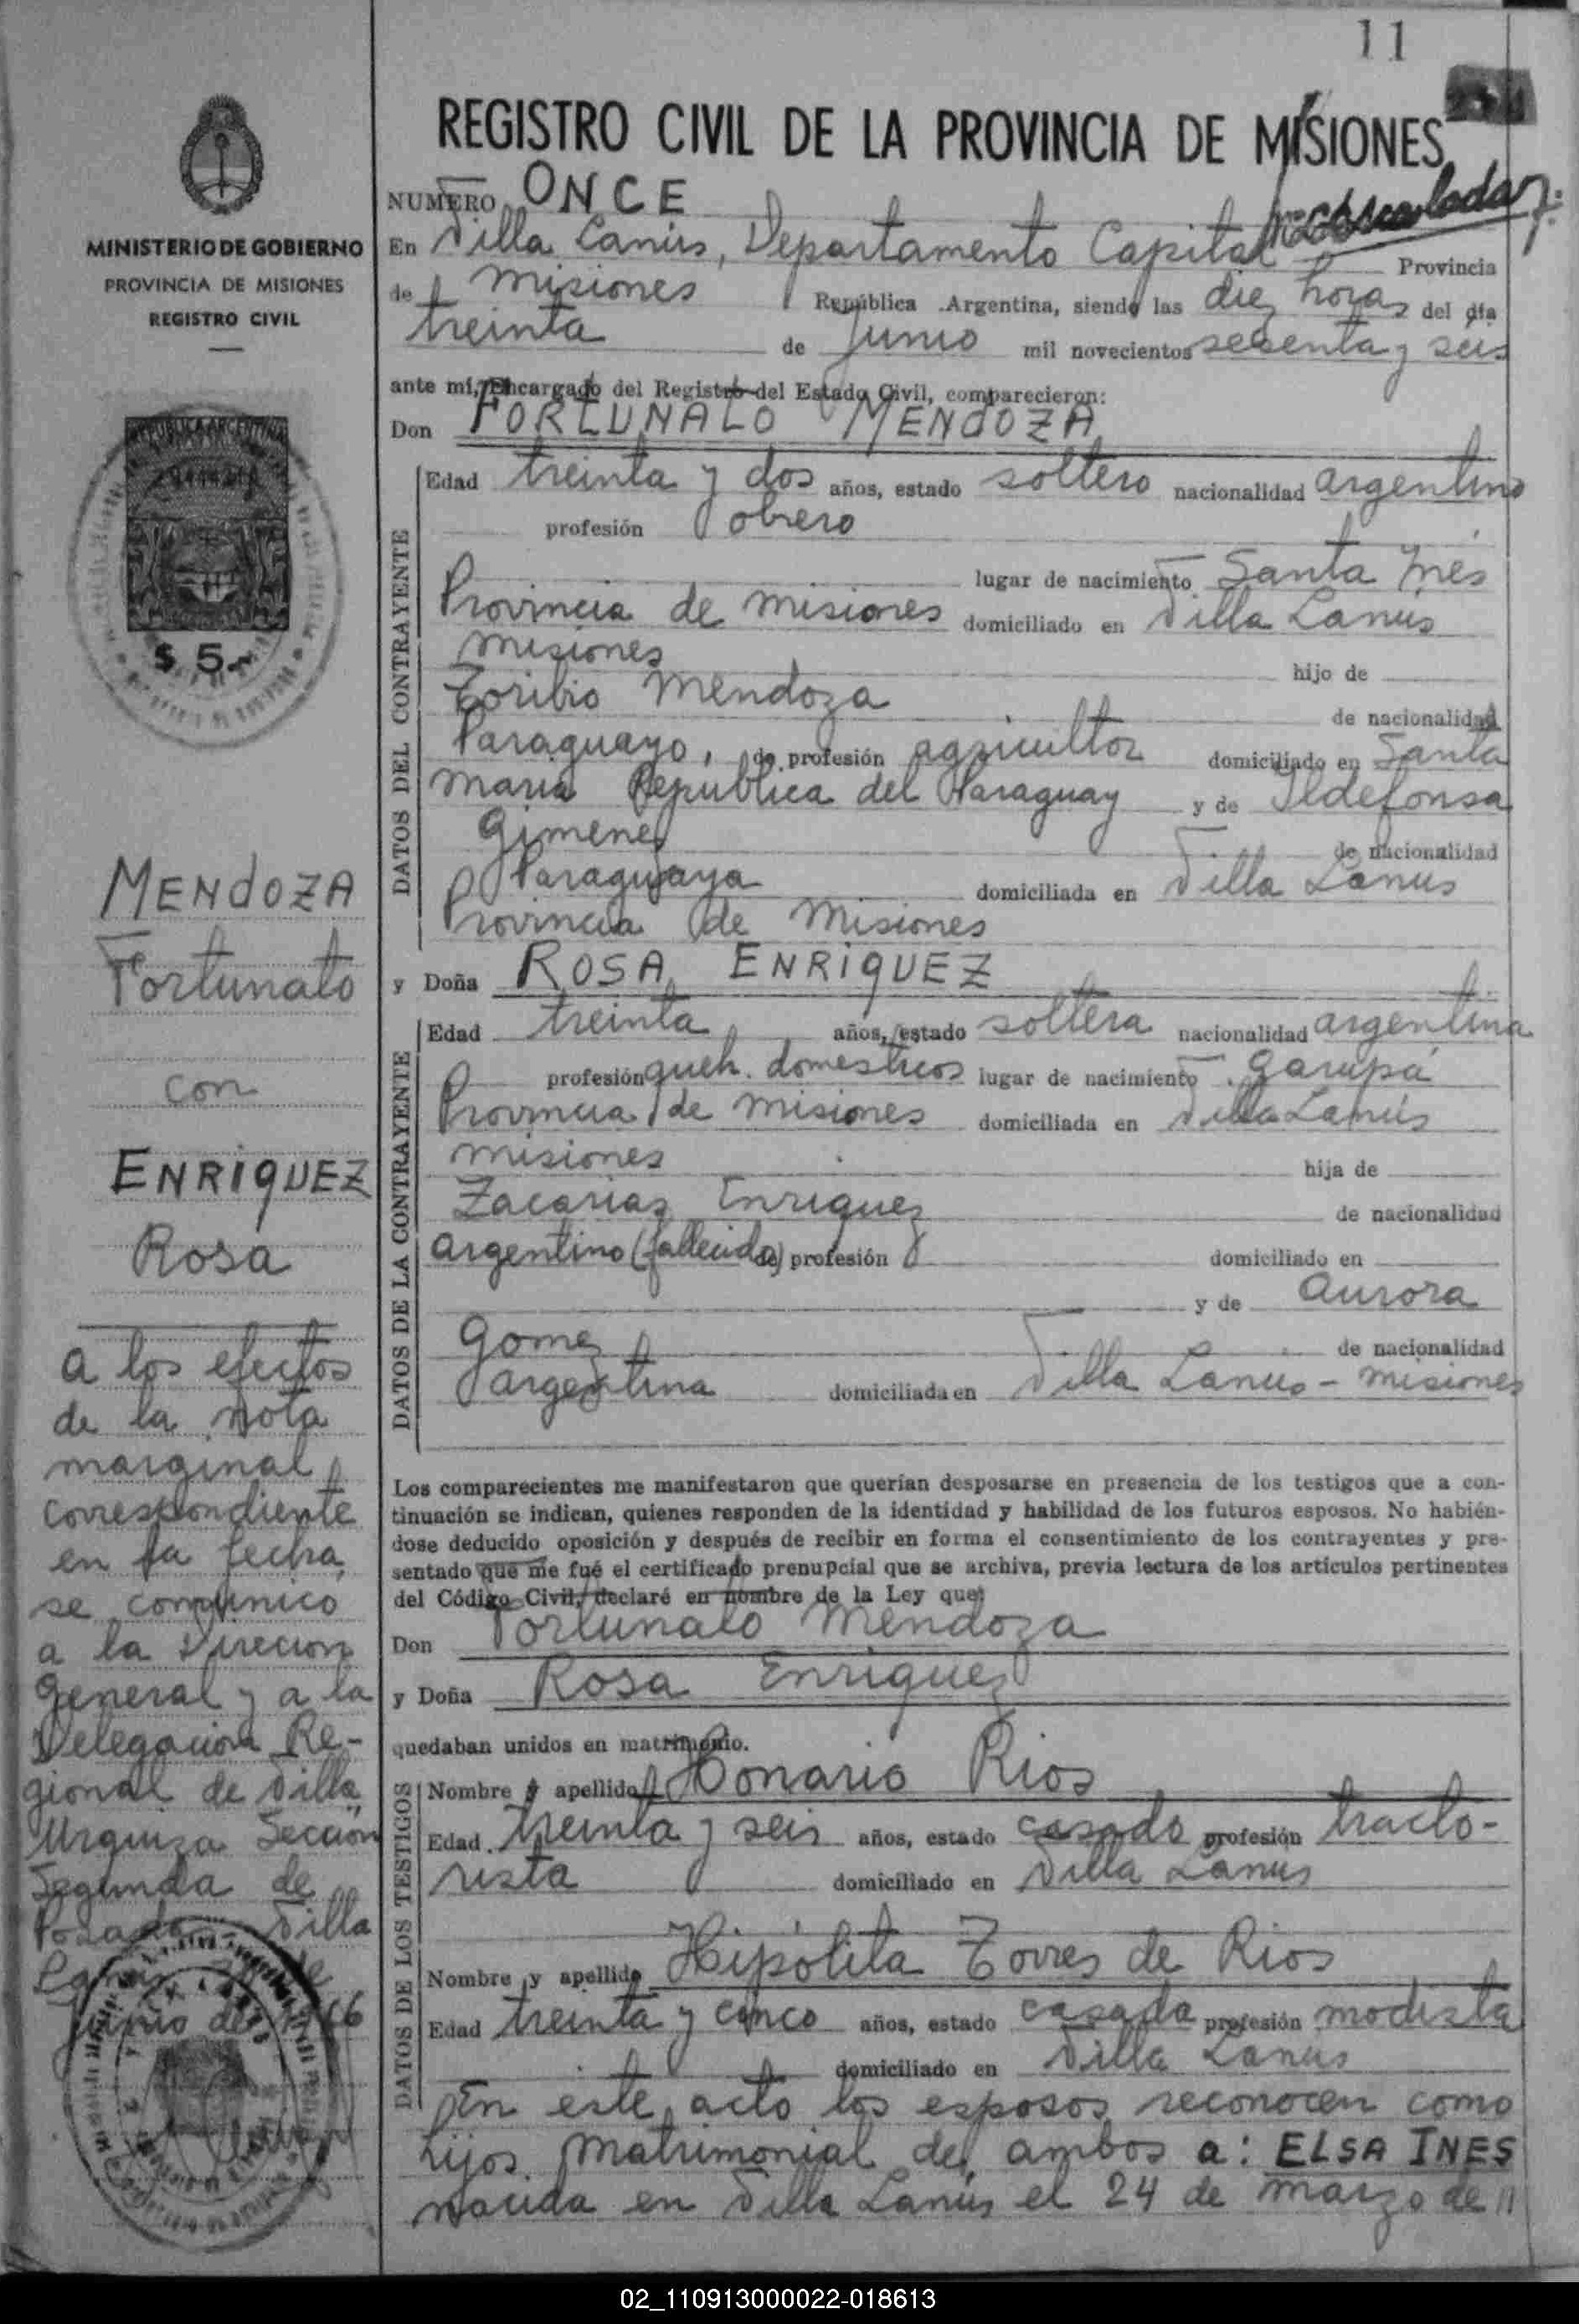 11
REGISTRO CIVIL DE LA PROVINCIA DE MISIONES
NUMERO ONCE
En Villa Lanús, Departamento Capital Provincia
de Misiones República Argentina, siendo las diez horas del día
treinta de Junio mil novecientos sesenta y seis
ante mí, Encargado del Registro del Estado Civil, comparecieron:
Don FORTUNATO MENDOZA
DATOS DEL CONTRAYENTE
Edad treinta y dos años, estado soltero nacionalidad argentino
profesión obrero
lugar de nacimiento Santa Inés
Provincia de Misiones domiciliado en Villa Lanús
Misiones hijo de
Toribio Mendoza de nacionalidad
Paraguayo, de profesión agricultor domiciliado en Santa
Maria Republica del Paraguay y de Ildefonsa
Gimenez de nacionalidad
Paraguaya domiciliada en Villa Lanus
Provincia de Misiones
y Doña ROSA ENRIQUEZ
DATOS DE LA CONTRAYENTE
Edad treinta años, estado soltera nacionalidad argentina
profesión queh. domesticos lugar de nacimiento Garupá
Provincia de Misiones domiciliada en Villa Lanús
Misiones hija de
Zacarias Enriquez de nacionalidad
argentino (fallecido) de profesión domiciliado en
y de Aurora
Gomez de nacionalidad
argentina domiciliada en Villa Lanus - Misiones
Los comparecientes me manifestaron que querían desposarse en presencia de los testigos que a con-
tinuación se indican, quienes responden de la identidad y habilidad de los futuros esposos. No habién-
dose deducido oposición y después de recibir en forma el consentimiento de los contrayentes y pre-
sentado que me fué el certificado prenupcial que se archiva, previa lectura de los artículos pertinentes
del Código Civil, declaré en nombre de la Ley que:
Don Fortunato Mendoza
y Doña Rosa Enriquez
quedaban unidos en matrimonio.
DATOS DE LOS TESTIGOS
Nombre y apellido Honario Rios
Edad treinta y seis años, estado casado profesión tracto-
rista domiciliado en Villa Lanús
Nombre y apellido Hipólita Torres de Rios
Edad treinta y cinco años, estado casada profesión modista
domiciliado en Villa Lanus
En este acto los esposos reconocen como
hijos matrimonial de ambos a: ELSA INES
nacida en Villa Lanús el 24 de marzo de 11
MINISTERIO DE GOBIERNO
PROVINCIA DE MISIONES
REGISTRO CIVIL
REPUBLICA ARGENTINA
$ 5.-
MENDOZA
Fortunato
con
ENRIQUEZ
Rosa
A los efectos
de la nota
marginal
correspondiente
en la fecha
se comunicó
a la Direcion
General y a la
Delegación Re-
gional de Villa
Urquiza Sección
Segunda de
Posadas Villa
Lanús 30 de
Junio de 1966
02_110913000022-018613